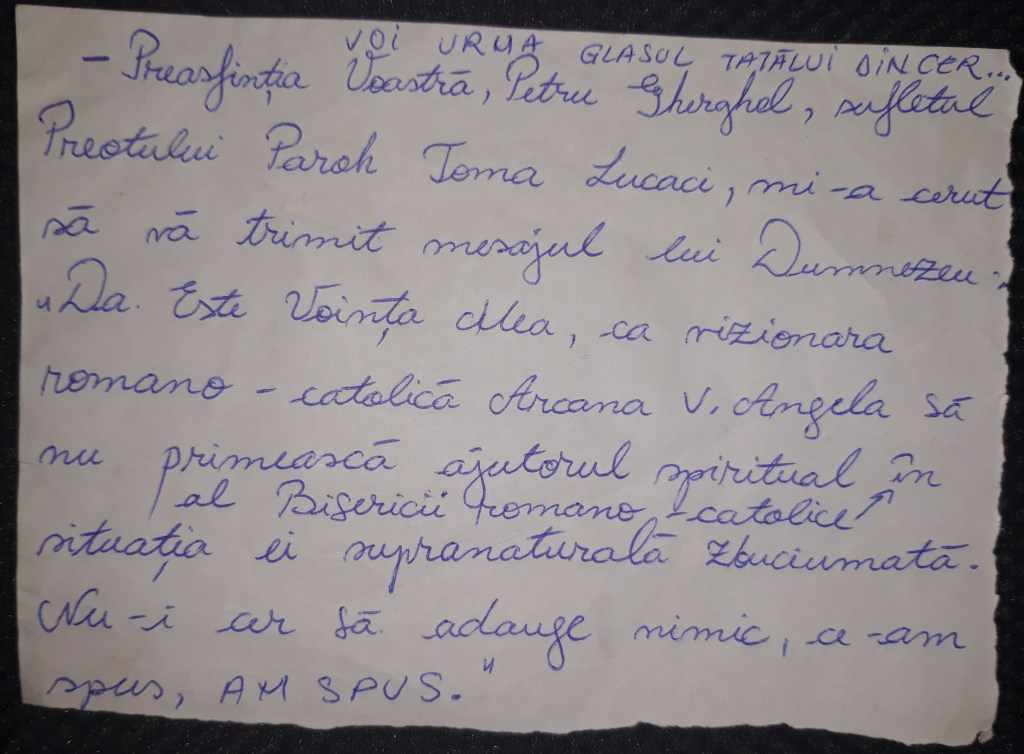 VOI URMA GLASUL TATĂLUI DIN CER...
- Preasfinția Voastră, Petru Gherghel, sufletul
Preotului Paroh Toma Lucaci, mi-a cerut
să vă trimit mesajul lui Dumnezeu:
"Da. Este Voința Mea, ca vizionara
romano-catolică Arcana V. Angela să
nu primească ajutorul spiritual în
al Bisericii romano-catolice
situația ei supranaturală zbuciumată.
Nu-i cer să adauge nimic, ce-am
spus, AM SPUS."